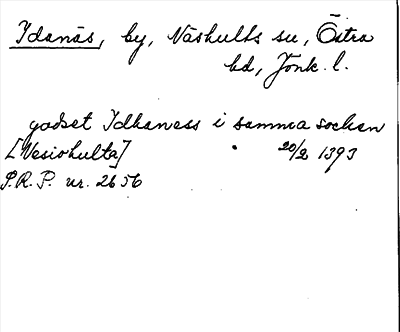 Idanäs, by, Näshults sn, Östra
hd, Jönk. l.
godset Idhaness i samma sochan
[Nesiohulta] 20/2 1393
S.R.P. nr. 2656